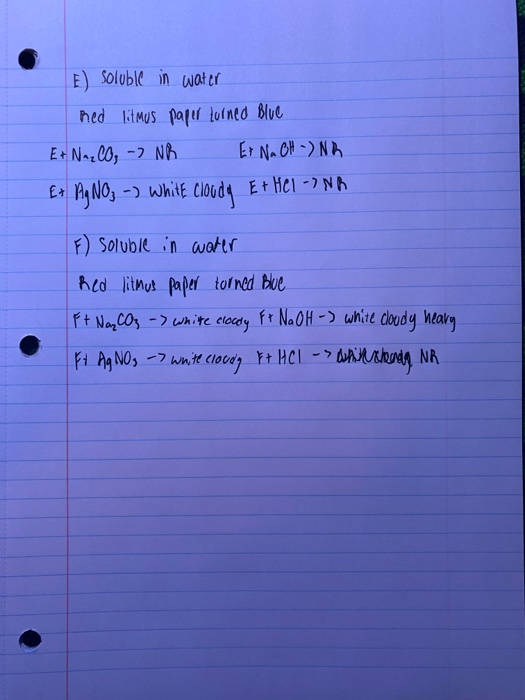 E) Soluble in water
Red litmus paper turned Blue
E+ Na₂CO₃ -> NR E+ NaOH -> NR
E+ AgNO₃ -> White cloudy E+HCl -> NR
F) Soluble in water
Red litmus paper turned Blue
F+ Na₂CO₃ -> white cloudy F+ NaOH -> white cloudy heavy
F+ AgNO₃ -> white cloudy F+HCl -> NR